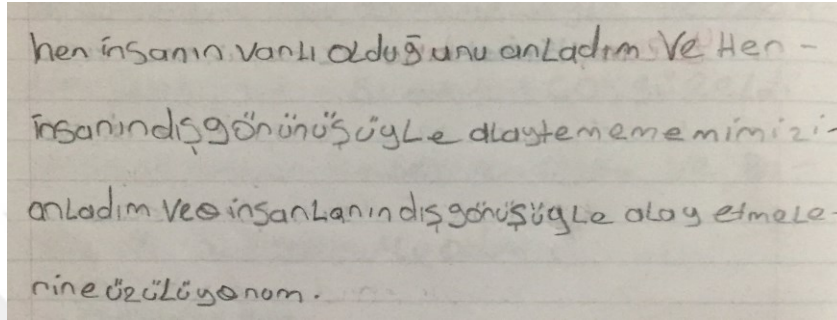 hen insanın vanlı olduğunu anladım Ve Hen-
insanındışgönünüşüyle alaytemememimizi-
anladım Veo insanlanındışgönüşüyle alay etmele-
nine üzülüyonom.